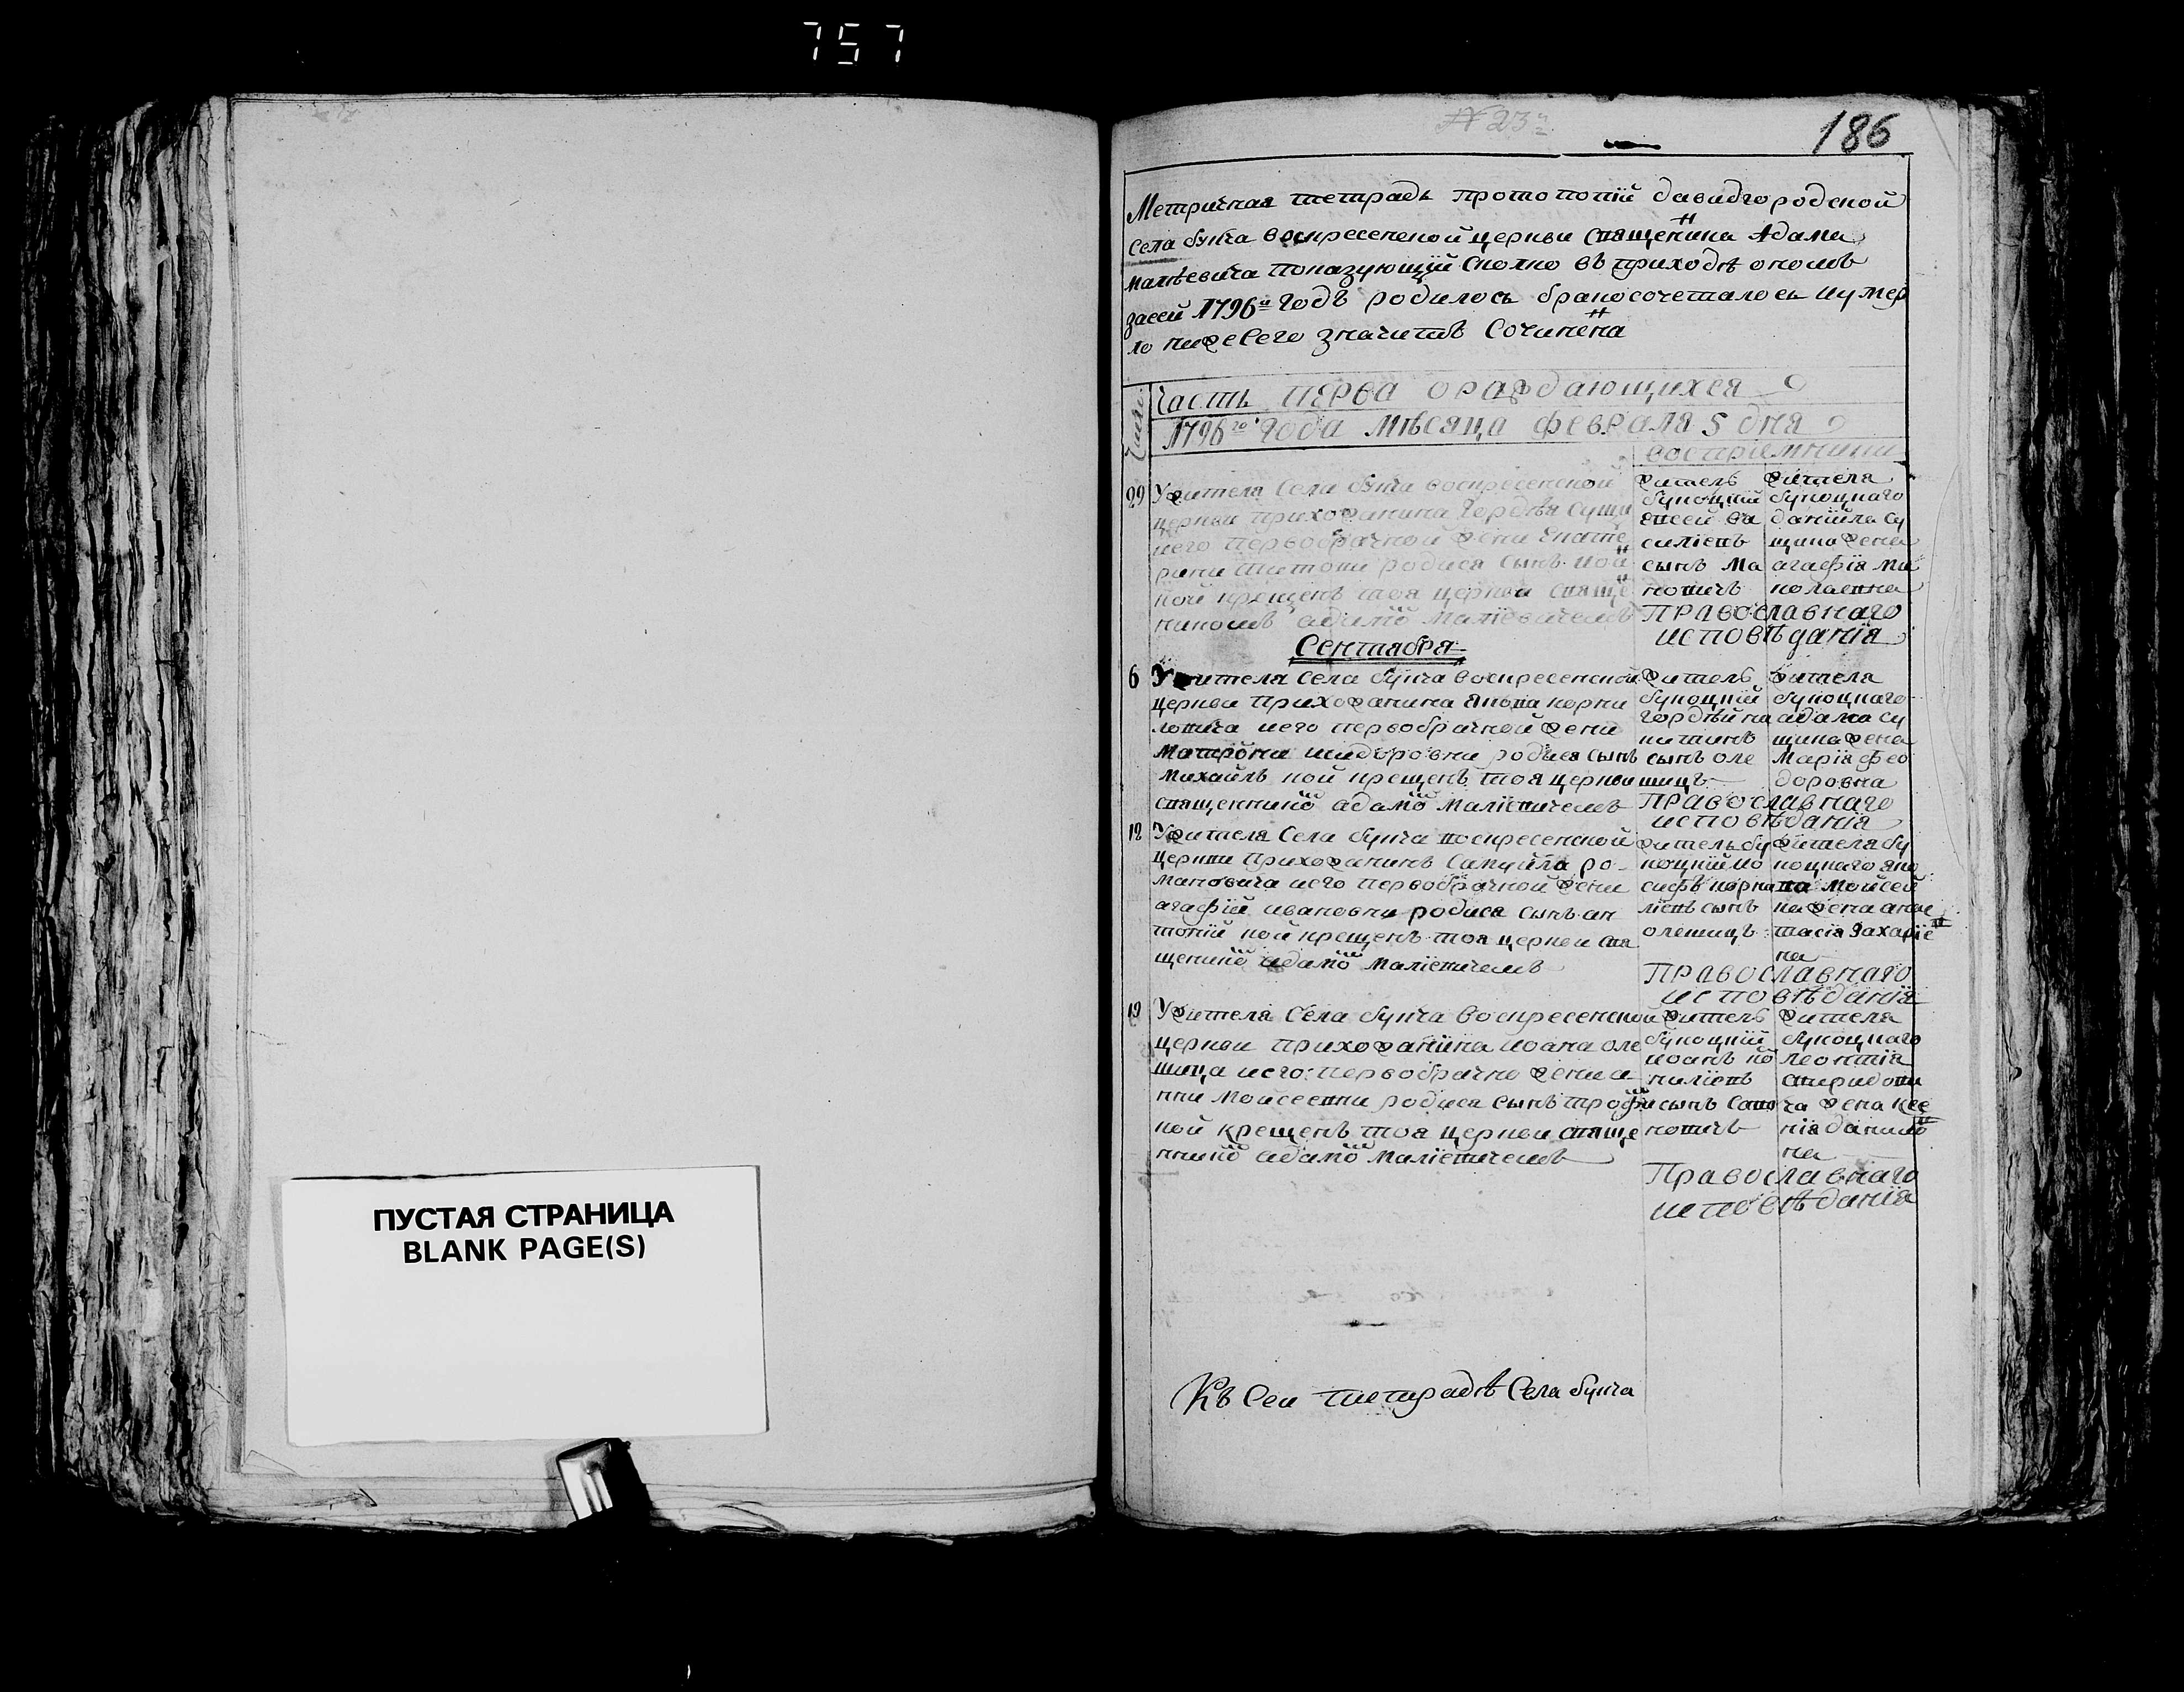 757
ПУСТАЯ СТРАНИЦА
BLANK PAGE(S)
№ 23й
186
Метричная тетрадь протопопїй давидгородской
села бухча воскресенской церкви священика Адама
малѣевича показующїй сколко въ приходѣ ономъ
засей 1796й годъ родилось бракосочеталось и умер
ло нижесего значитъ сочинена
Часть перва ораждающихся
1796го года мѣсяца февраля 5 дня
восприемники
22 Ужителя села бухча воскресенской
церкви прихожанина гордѣя сущи
иего первобрачной жени екате
рини родися синъ кой
крещенъ тоя церкви свяще
никомъ адамо малїевичемъ
житель
букоцкїй
сынъ
жителя
букоцкаго
данїйла су
щика жена
агафїя ми
колаевна
православнаго
исповѣданїя
Сентября
6 Ужителя села бухча воскресенской
церкви прихожанина якова корни
ловича иего первобрачной жени
матрони родися сынъ
михайлъ кой крещенъ тоя церкви
священнико адамо малїевичемъ
житель
букоцкїй
гордѣй
сынъ оле
шицъ
жителя
букоцкаго
адама су
щика жена
марїя фео
доровна
православнаго
исповѣданїя
12 Ужителя села бухча воскресенской
церкви прихожанинъ самуйла ро
мановича иего первобрачной жени
агафїй ивановни родися сынъ ан
тонїй кой крещенъ тоя церкви свя
щенико адамо малїевичемъ
житель бу
коцкїй ио
сифъ корни
лїевъ сынъ
олешицъ
жителя бу
коцкаго яко
ва моисей
ка жена анас
тасїя захарїев
на
православнаго
исповѣданїя
19 Ужителя села бухча воскресенской
церкви прихожанина иоана оле
шица иего первобрачно жени а
нни моисеевни родися сынъ трофи
кой крещенъ тоя церкви свяще
ннико адамо малїевичемъ
житель
букоцкїй
иоанъ
сынъ
жителя
букоцкаго
леонтїя
спиридови
ча жена ксе
нїя данило
на
Православнаго
исповѣданїя
Къ сеи тетрадѣ села бухча